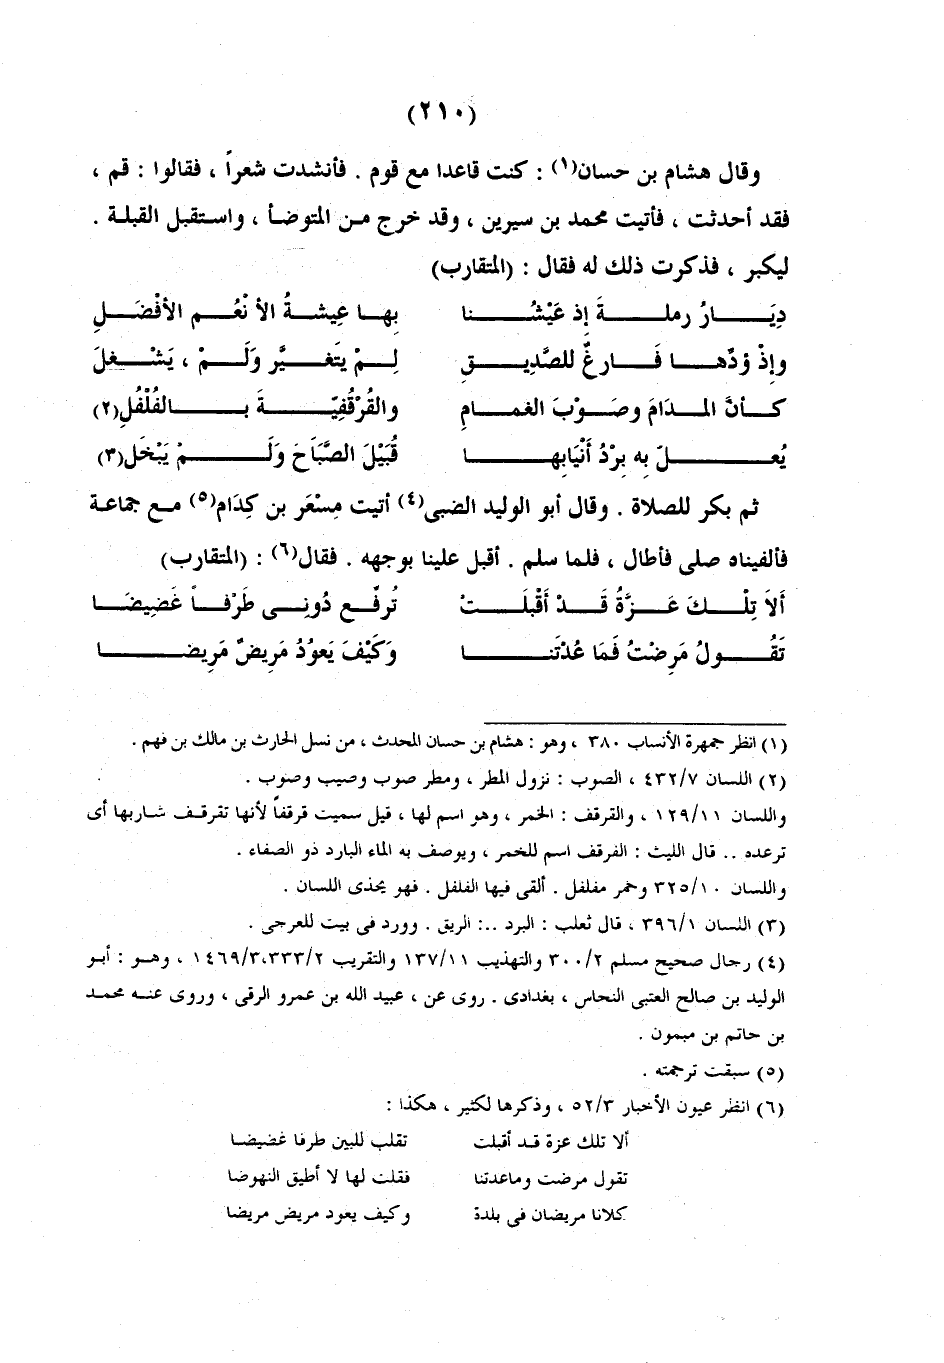 (٢١٠)
وقال هشام بن حسان(١) : كنت قاعدا مع قوم . فأنشدت شعراً ، فقالوا : قم ،
فقد أحدثت ، فأتيت محمد بن سيرين ، وقد خرج من المتوضأ ، واستقبل القبلة .
ليكبر ، فذكرت ذلك له فقال : (المتقارب)
دِيَارُ رملةَ إذ عَيْشُنا بها عِيشةُ الأنْعُم الأفْضَلِ
وإذْ وُدّها فَارغٌ للصَّديقِ لِمْ يَتَغيَّر وَلَمْ ، يَشْغلَ
كأنَّ المدامَ وصَوْبَ الغمامِ والقُرْقُفِيّةَ بالفُلْفُلِ(٢)
يُعلّ به بِردُ أنْيَابِها قُبَيْلَ الصَّبَاحَ وَلَمْ يَبْخَل(٣)
ثم بكر للصلاة . وقال أبو الوليد الضبى(٤) أتيت مِسْعَر بن كِدَام(٥) مع جماعة
فألفيناه صلى فأطال ، فلما سلم . أقبل علينا بوجهه . فقال(٦) : (المتقارب)
ألاَ تِلْكَ عَزَّةُ قَدْ أقْبلَتْ تُرفّع دُونِى طَرْفاً غَضِيضَا
تَقُولُ مَرِضْتُ فَمَا عُدْتَنا وَكَيْفَ يَعوُدُ مَرِيضٌ مَرِيضا
(١) انظر جمهرة الأنساب ٣٨٠ ، وهو : هشام بن حسان المحدث ، من نسل الحارث بن مالك بن فهم .
(٢) اللسان ٤٣٢/٧ ، الصوب : نزول المطر ، ومطر صوب وصيب وصوب .
واللسان ١٢٩/١١ ، والقرقف : الخمر ، وهو اسم لها ، قيل سميت قرقفاً لأنها تقرقف شاربها أى
ترعده .. قال الليث : الفرقف اسم للخمر ، ويوصف به الماء البارد ذو الصفاء .
واللسان ٣٢٥/١٠ وخمر مفلفل . ألقى فيها الفلفل . فهو يحذى اللسان .
(٣) اللسان ٣٩٦/١ ، قال ثعلب : البرد ..: الريق . وورد فى بيت للعرجى .
(٤) رجال صحيح مسلم ٣٠٠/٢ والتهذيب ١٣٧/١١ والتقريب ٣٣٣/٢،١٤٦٩/٣ ، وهو : أبو
الوليد بن صالح العتبى النحاس ، بغدادى . روى عن ، عبيد الله بن عمرو الرقى ، وروى عنه محمد
بن حاتم بن ميمون .
(٥) سبقت ترجمته .
(٦) انظر عيون الأخبار ٥٢/٣ ، وذكرها لكثير ، هكذا :
ألا تلك عزة قد أقبلت تقلب للبين طرفا غضيضا
تقول مرضت وماعدتنا فقلت لها لا أطيق النهوضا
كلانا مريضان فى بلدة وكيف يعود مريض مريضا